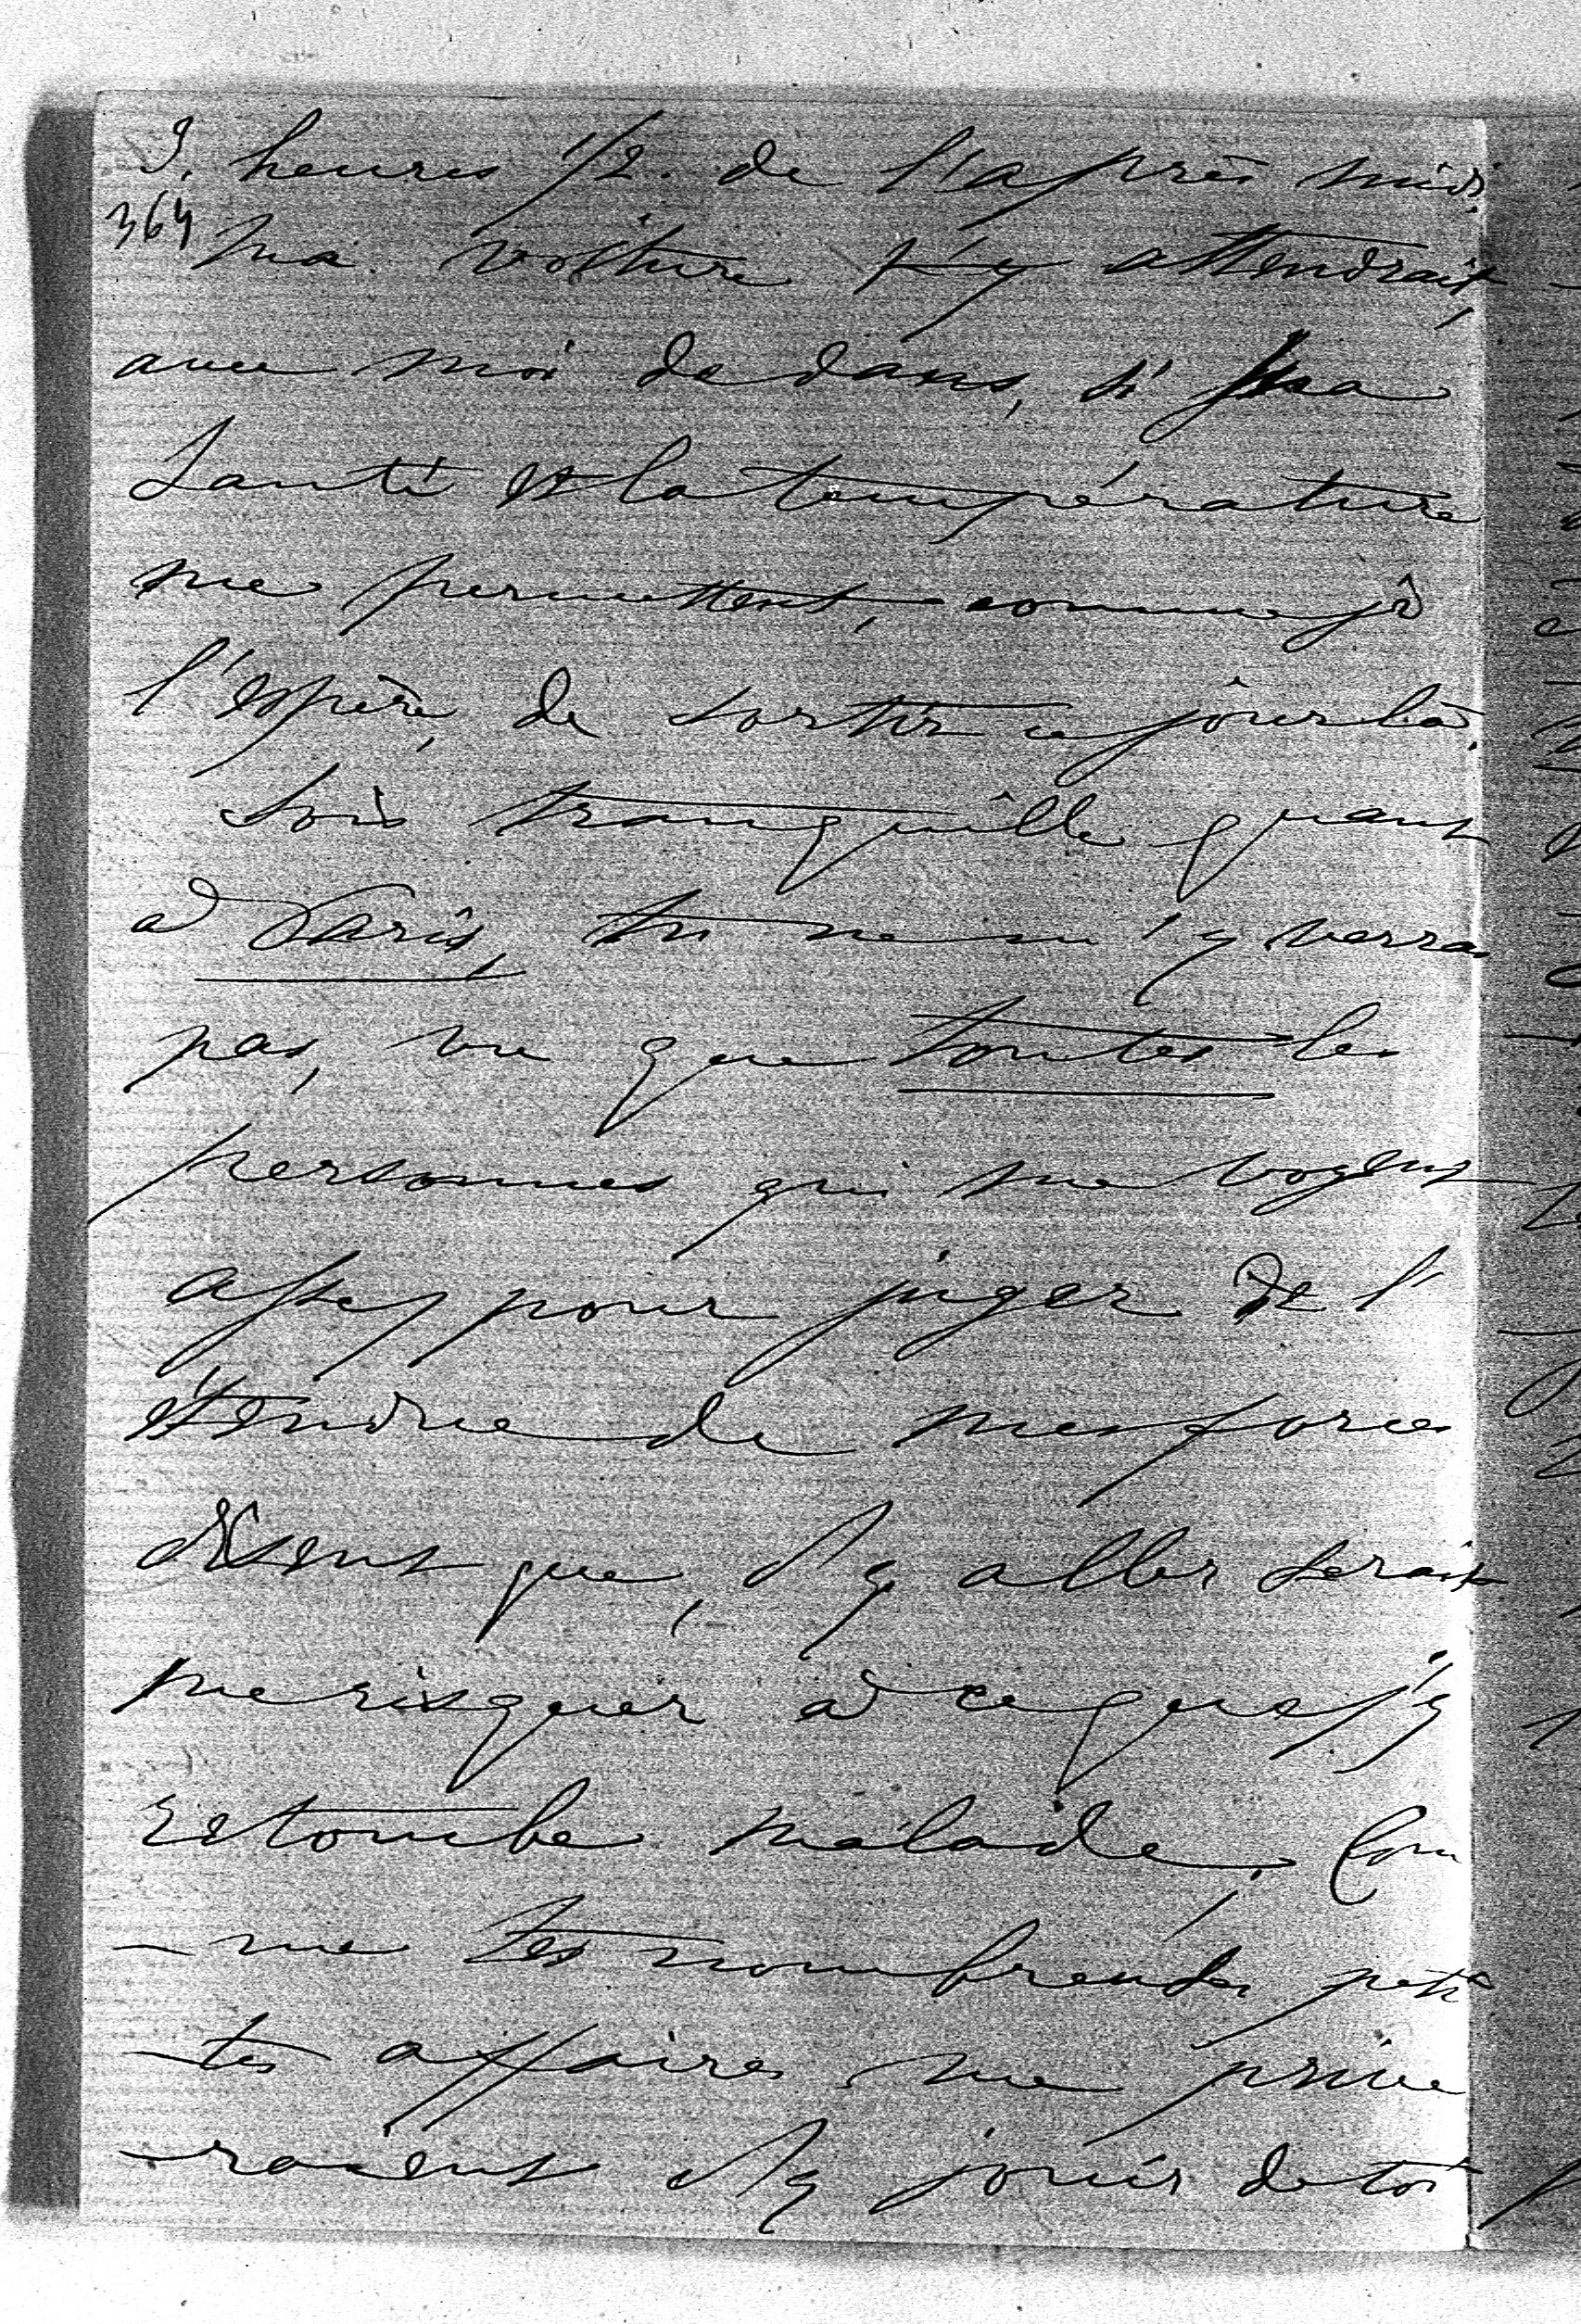 3. heures 1/2. de l'après midi.
364
Ma voiture t'y attendrait,
avec moi dedans, si ma
santé et la température
me permettent, comme je
l'espère, de sortir ce jour là.
Sois tranquille quant
à Paris, tu ne m'y verras
pas, vu que toutes les
personnes qui me voyent
assez pour juger de l'
étendue de mes forces
disent que, d'y aller serait
me risquer à ce que j'y
retombe malade. Com
-me tes nombreuses peti
-tes affaires me prive
-raient d'y jouir de toi